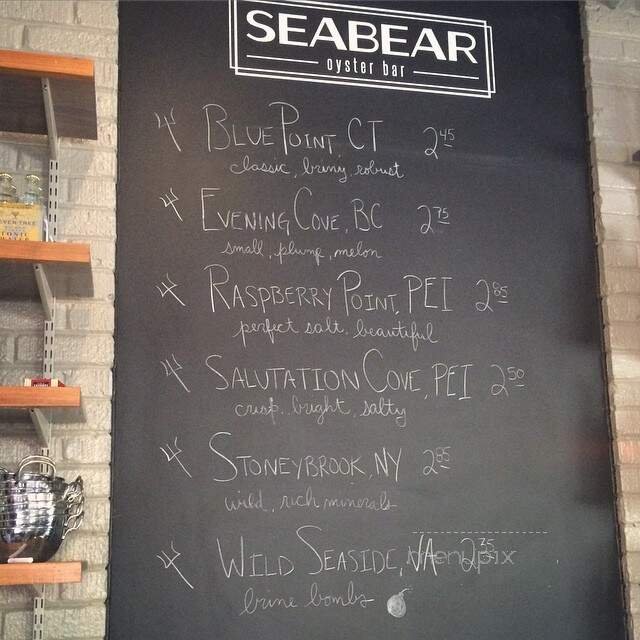 SEABEAR
oyster bar
BLUE POINT, CT 2.45
classic, briny, robust
EVENING COVE, BC 2.75
small, plump, melon
RASPBERRY POINT, PEI 2.85
perfect salt, beautiful
SALUTATION COVE, PEI 2.50
crisp, bright, salty
STONEYBROOK, NY 2.85
wild, rich minerals
WILD SEASIDE, VA 2.35
brine bombs
menupix
FEVER-TREE
TONIC